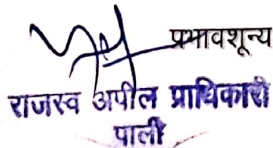 प्रभावशून्य
राजस्व अपील प्राधिकारी
पाली